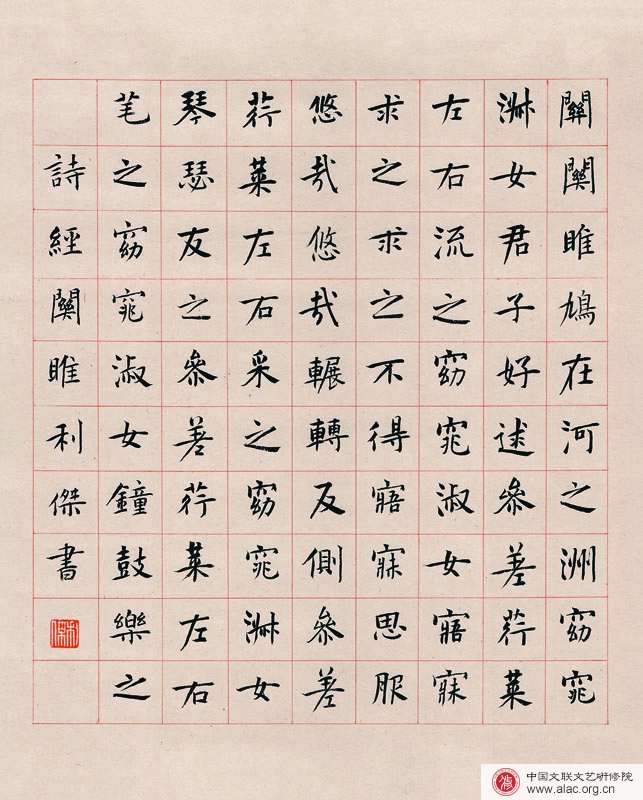 關關雎鳩在河之洲窈窕
淑女君子好逑參差荇菜
左右流之窈窕淑女寤寐
求之求之不得寤寐思服
悠哉悠哉輾轉反側參差
荇菜左右采之窈窕淑女
琴瑟友之參差荇菜左右
芼之窈窕淑女鐘鼓樂之
詩經關雎利傑書
中国文联文艺研修院
www.alac.org.cn